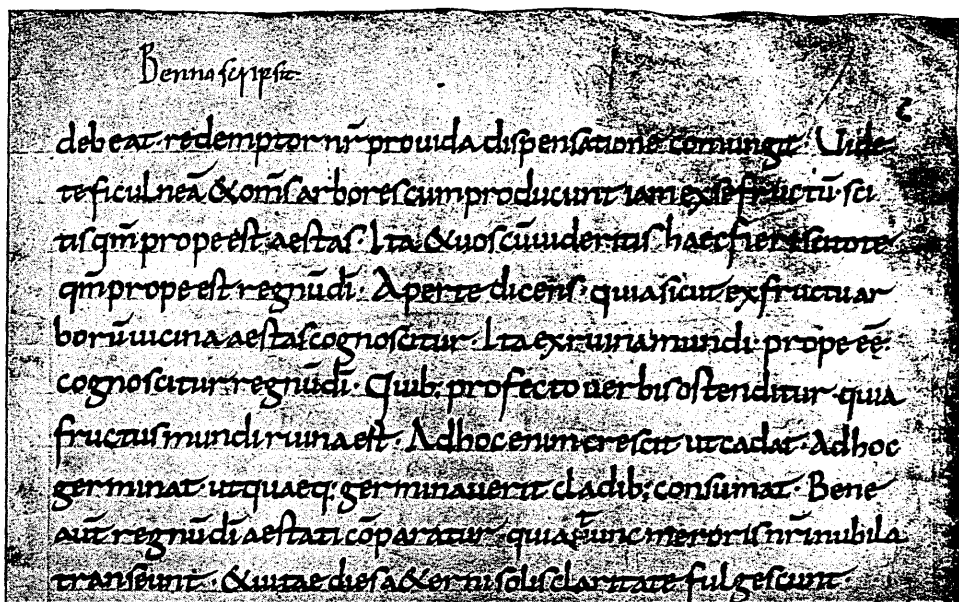 Benno scripsit
debeat redemptor nr̄ prouida dispensatione comungit· Uide
te ficulneā & om̄s arbores cum producunt iam ex se fructū· sci
tis qm̄ prope est aestas· Ita & uos cū uideritis haec fieri scitote
qm̄ prope est regnū dī· Aperte dicens· quia sicut ex fructu ar
borū uicina aestas cognoscitur· Ita ex ruina mundi prope eē·
cognoscitur regnū dī· Quib; profecto uerbis ostenditur quia
fructus mundi ruina est· Ad hoc enim crescit ut cadat· Ad hoc
germinat ut quaeq; germinauerit cladib; consumat· Bene
aut̄ regnū dī aestati cōparatur· quia tunc meroris nr̄i nubila
transeunt· & uitae dies a&erni solis claritate fulgescunt·